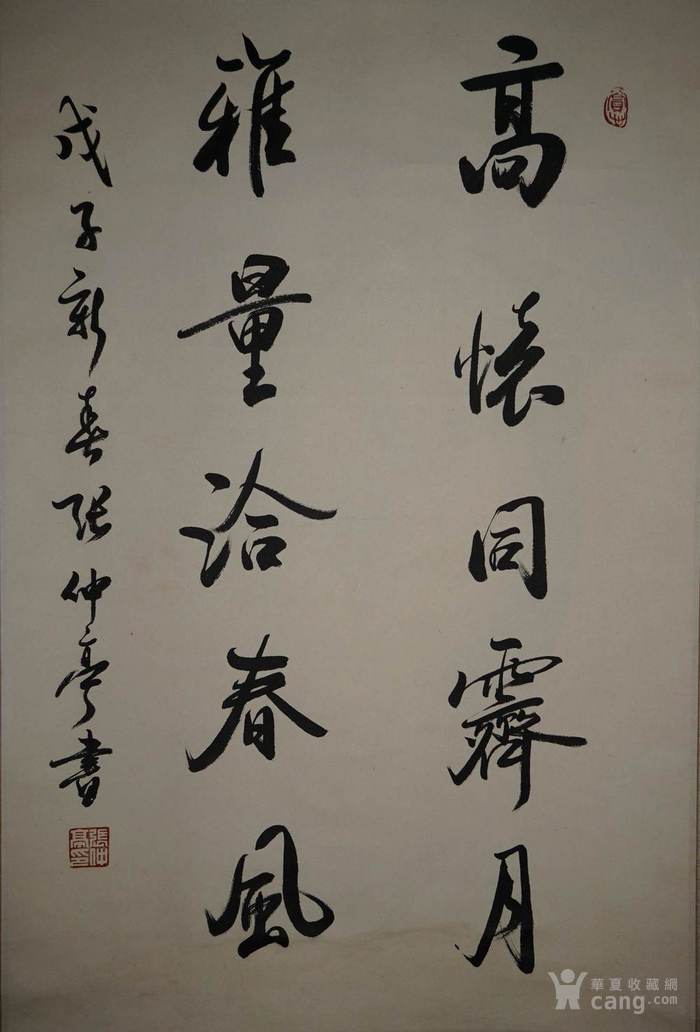 高懷同霽月
雅量洽春風
戊子新春張仲亭書
張仲亭印
華夏收藏網
cang.com